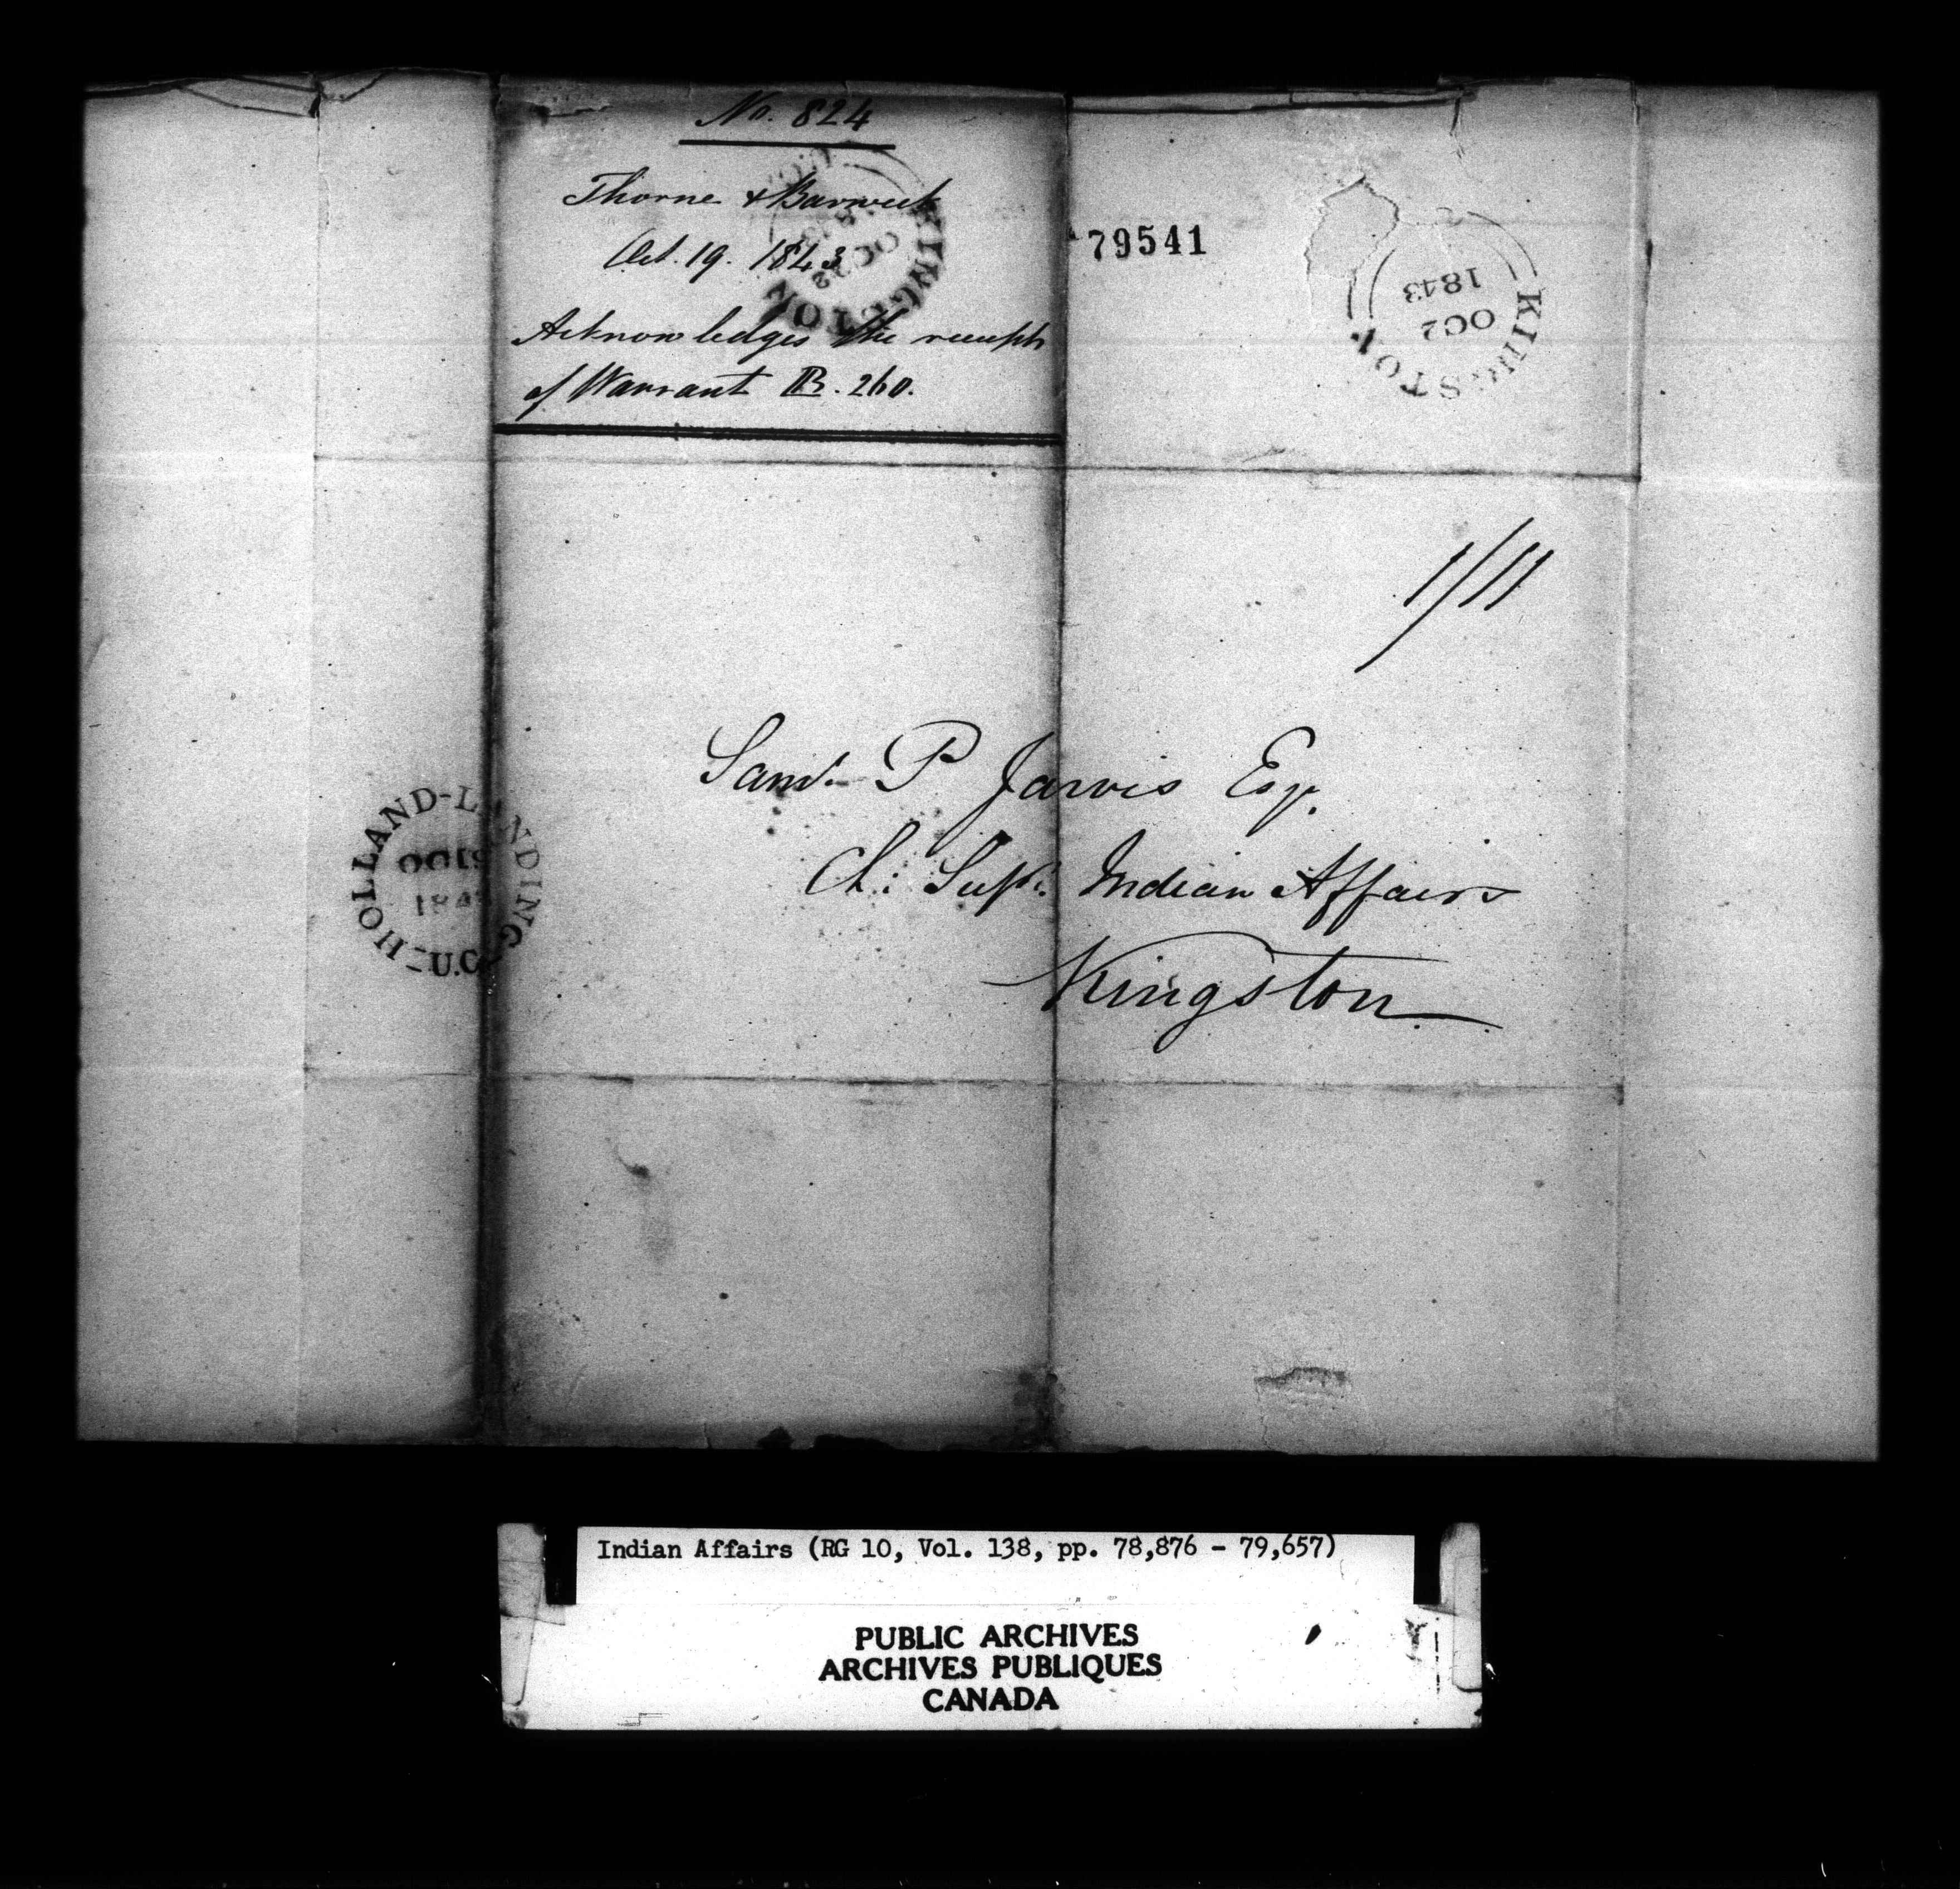 No. 824
Thorne & Barwick
Oct. 19. 1843
Acknowledges the receipt
of Warrant B. 260.
KINGSTON
OC22
79541
KINGSTON
OC2
1843
1/11
Saml. P Jarvis Esqr.
Ch: Supt. Indian Affairs
Kingston
HOLLAND-LANDING-U.C.
OC19
184
Indian Affairs (RG 10, Vol. 138, pp. 78,876 - 79,657)
PUBLIC ARCHIVES
ARCHIVES PUBLIQUES
CANADA